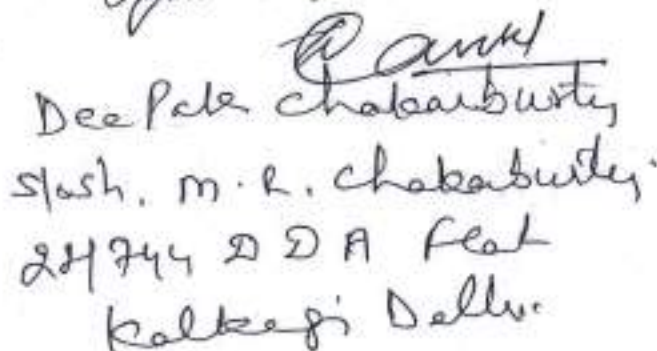 DeePak Chakarburty
S/o Sh. M. R. Chakaburty
DDA Flat
Kalkagi Delhi.